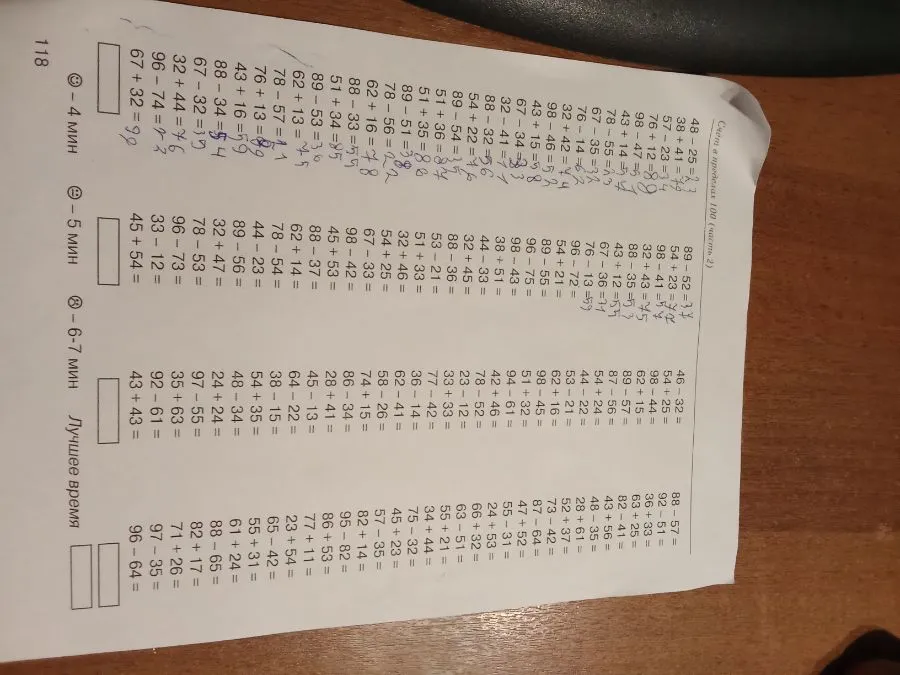 Счёт в пределах 100 (часть 2)
48 – 25 = 23
38 + 41 = 79
57 – 23 = 34
76 + 12 = 89
98 – 47 = 51
43 + 14 = 57
78 – 55 = 23
67 – 35 = 32
76 – 14 = 62
32 + 42 = 74
98 – 46 = 52
43 + 15 = 58
67 – 34 = 33
32 – 41 =
88 – 32 = 56
54 + 22 = 76
89 – 54 = 35
51 + 36 = 87
51 + 35 = 86
89 – 51 = 38
78 – 56 = 22
62 + 16 = 78
88 – 33 = 55
51 + 34 = 85
89 – 53 = 36
62 + 13 = 75
78 – 57 =
76 + 13 = 89
43 + 16 = 59
88 – 34 = 54
67 – 32 =
32 + 44 = 76
96 – 74 =
67 + 32 =
89 – 52 = 37
54 + 23 = 77
98 – 41 = 57
32 + 43 = 75
88 – 35 = 53
43 + 12 = 55
67 – 36 = 31
76 – 13 =
96 – 72 =
54 + 21 =
89 – 55 =
96 – 75 =
98 – 43 =
38 + 51 =
44 – 33 =
32 + 45 =
88 – 36 =
53 – 21 =
51 + 33 =
32 + 46 =
54 + 25 =
67 – 33 =
98 – 42 =
45 + 53 =
88 – 37 =
62 + 14 =
78 – 54 =
44 – 23 =
89 – 56 =
32 + 47 =
78 – 53 =
96 – 73 =
33 – 12 =
45 + 54 =
46 – 32 =
54 + 25 =
98 – 44 =
62 + 15 =
89 – 57 =
87 – 56 =
54 + 24 =
44 – 22 =
53 – 21 =
62 + 16 =
98 – 45 =
51 + 32 =
94 – 61 =
42 + 46 =
78 – 52 =
23 – 12 =
33 + 33 =
77 – 42 =
36 – 14 =
62 – 41 =
58 – 26 =
74 + 15 =
86 – 34 =
28 + 41 =
45 – 13 =
64 – 22 =
38 – 15 =
54 + 35 =
48 – 34 =
24 + 24 =
97 – 55 =
35 + 63 =
92 – 61 =
43 + 43 =
88 – 57 =
92 – 51 =
36 + 33 =
63 + 25 =
82 – 41 =
43 + 56 =
48 – 35 =
28 + 61 =
52 + 37 =
73 – 42 =
87 – 64 =
47 + 52 =
55 – 31 =
24 + 53 =
66 + 32 =
63 – 51 =
55 + 21 =
34 + 44 =
75 – 32 =
45 + 23 =
57 – 35 =
82 + 14 =
95 – 82 =
86 + 53 =
77 + 11 =
23 + 54 =
65 – 42 =
55 + 31 =
61 + 24 =
88 – 65 =
82 + 17 =
71 + 26 =
97 – 35 =
96 – 64 =
– 4 мин – 5 мин – 6-7 мин Лучшее время
118